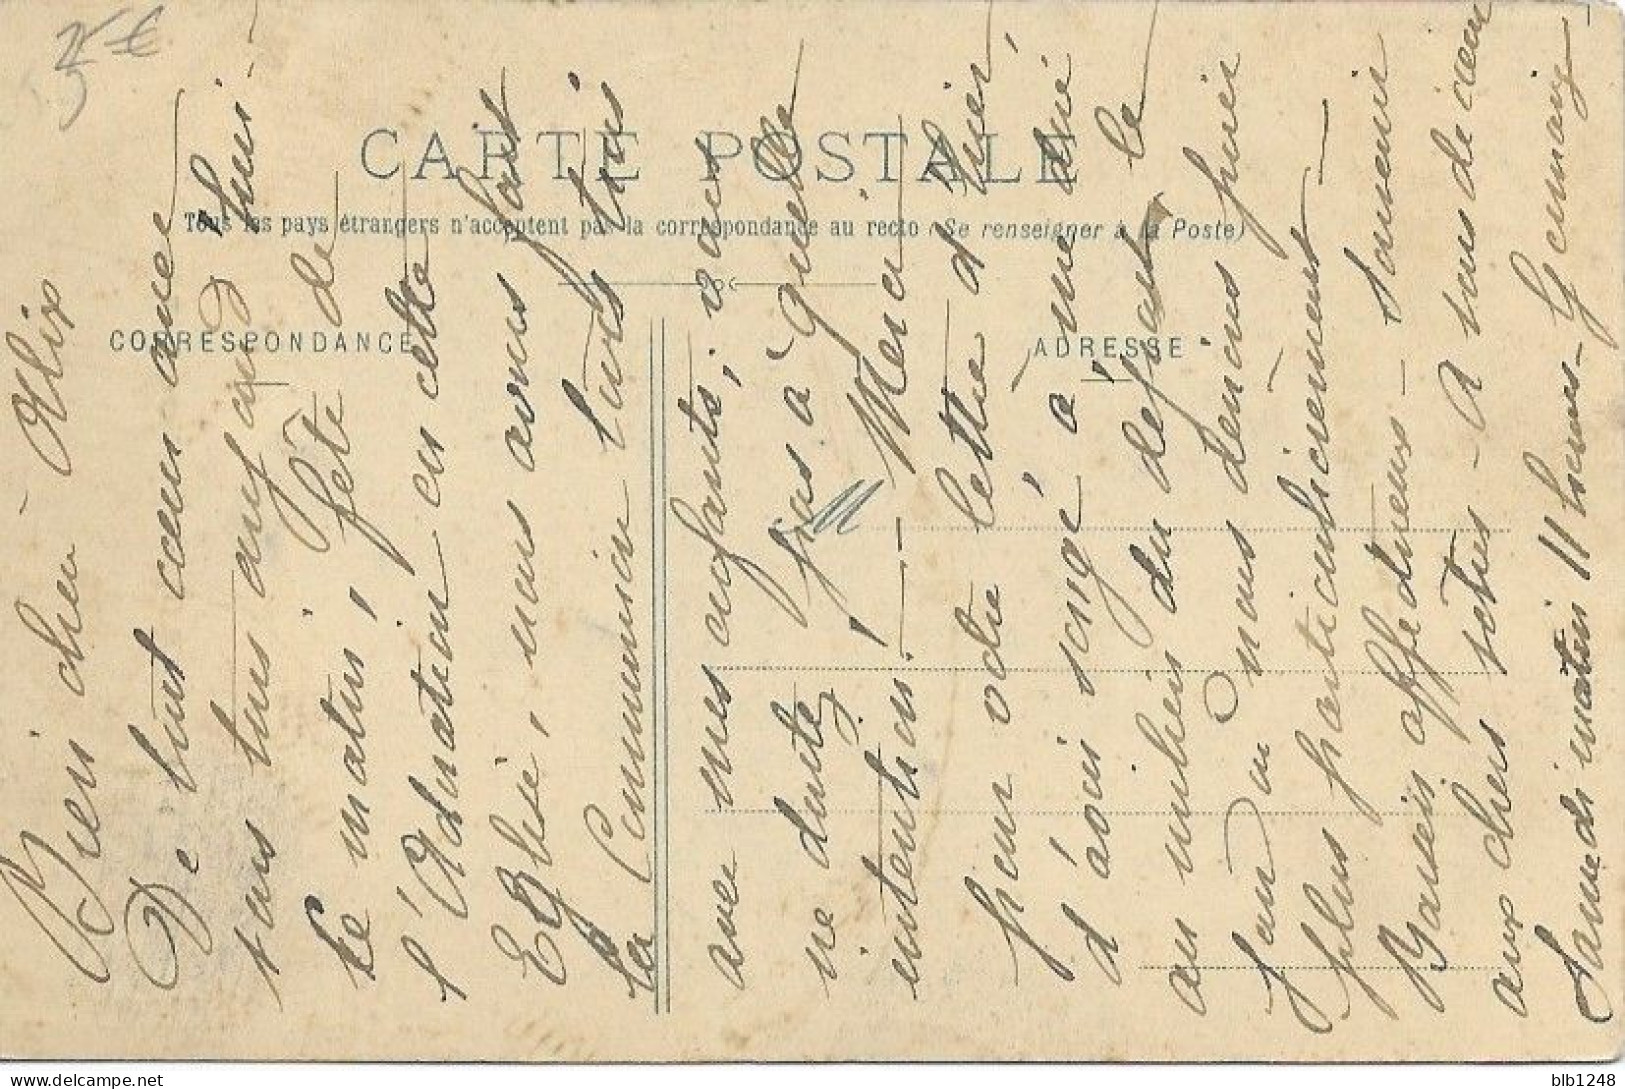 25 €
CARTE POSTALE
Tous les pays étrangers n'acceptent pas la correspondance au recto (Se renseigner à la Poste)
CORRESPONDANCE
ADRESSE
Bien cher Alix
De tout cœur avec
tous tus aujourd'hui -
Ce matin, fête de
l'Adoration en cette
Eglise, nous avons fait
la Communion tous trois
avec mes enfants, vous
ne doutez pas à quelle
intention! - Merci
pour votre lettre d'hier,
d'avoir songé à me dire
au milieu du défaut de
nous devions prier
plus particulièrement -
Baisers affectueux - souvenir
aux chers vôtres - A vous de cœur
Samedi matin 11 heures - Germaine -
blb1248